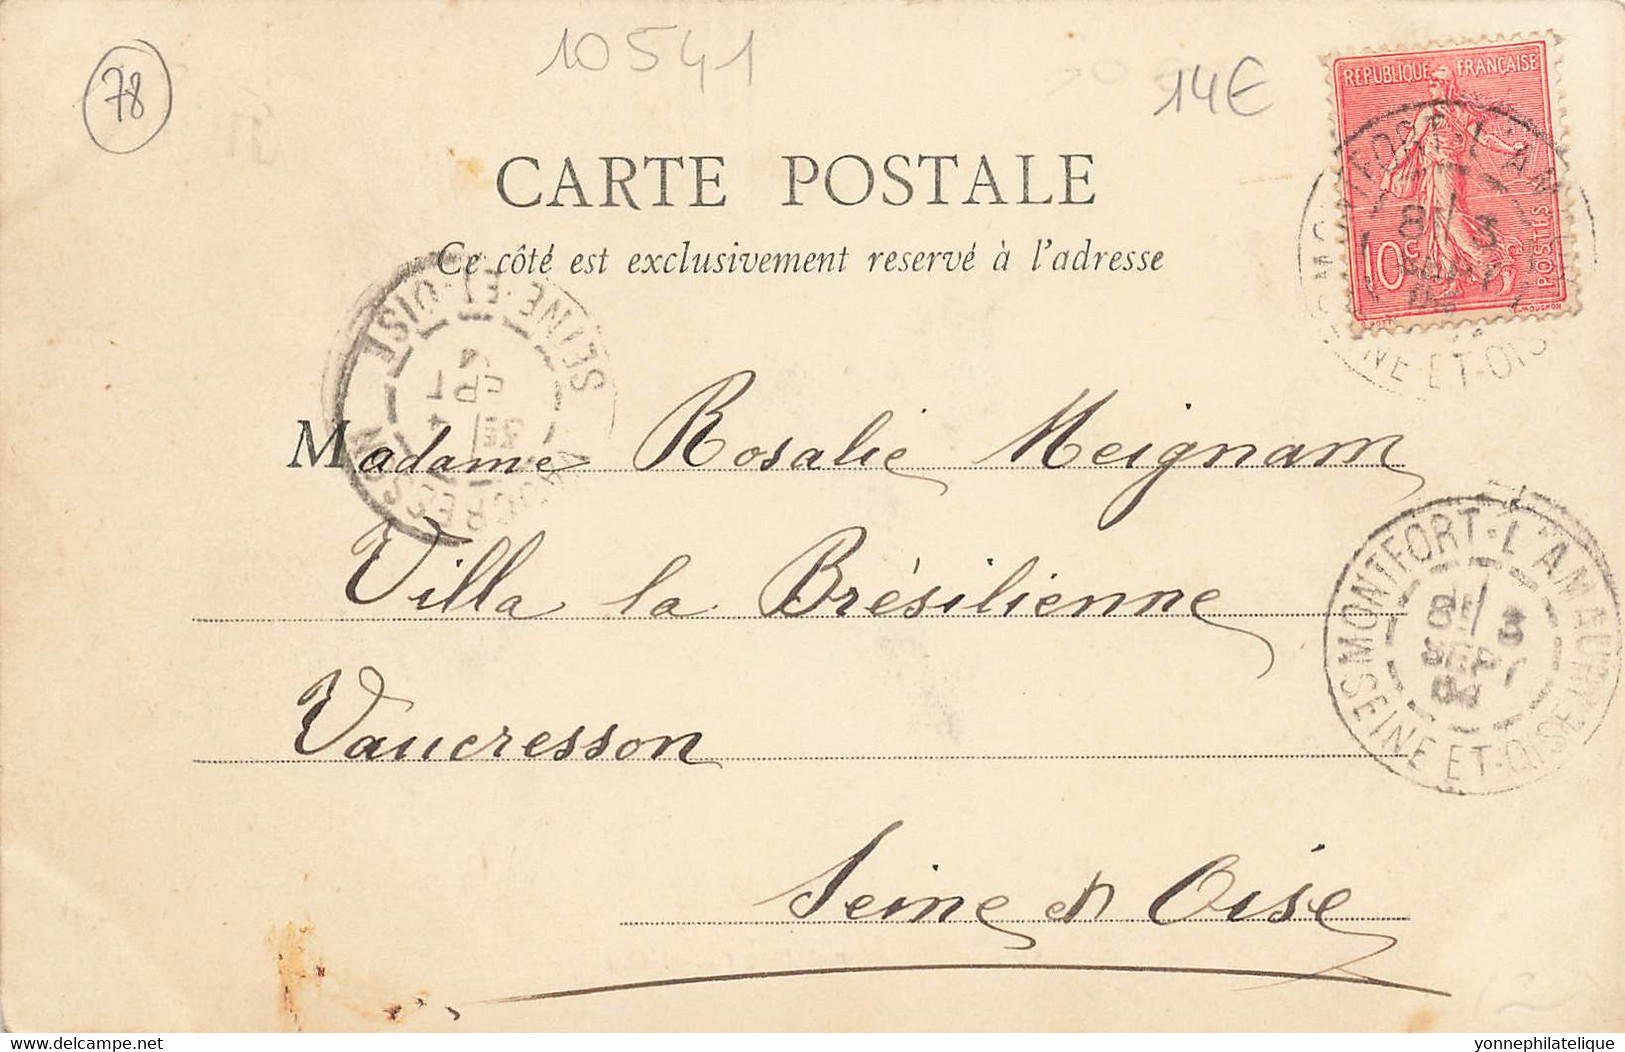 78
10541
14€
REPUBLIQUE FRANÇAISE
10c
POSTES
CARTE POSTALE
Ce côté est exclusivement reservé à l'adresse
SEINE-ET-OISE
Madame Rosalie Meignam
Villa la Brésilienne
Vaucresson
Seine et Oise
MONTFORT-L'AMAURY
8E 3
SEPT
04
SEINE-ET-OISE
delcampe.net
yonnephilatelique